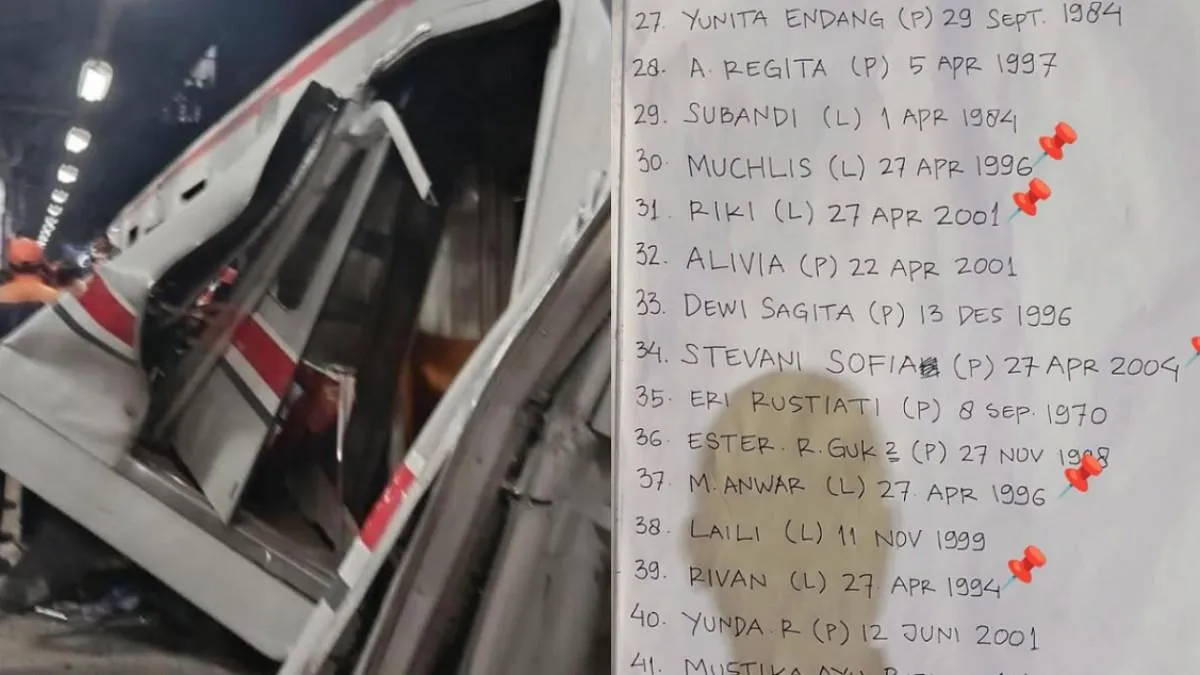 27. YUNITA ENDANG (P) 29 SEPT. 1984
28. A. REGITA (P) 5 APR 1997
29. SUBANDI (L) 1 APR 1984
30. MUCHLIS (L) 27 APR 1996
31. RIKI (L) 27 APR 2001
32. ALIVIA (P) 22 APR 2001
33. DEWI SAGITA (P) 13 DES 1996
34. STEVANI SOFIA (P) 27 APR 2004
35. ERI RUSTIATI (P) 8 SEP. 1970
36. ESTER. R. GUK 2 (P) 27 NOV 1998
37. M. ANWAR (L) 27. APR 1996
38. LAILI (L) 11 NOV 1999
39. RIVAN (L) 27. APR 1994
40. YUNDA. R (P) 12 JUNI 2001
41. MUSTIKA AYU